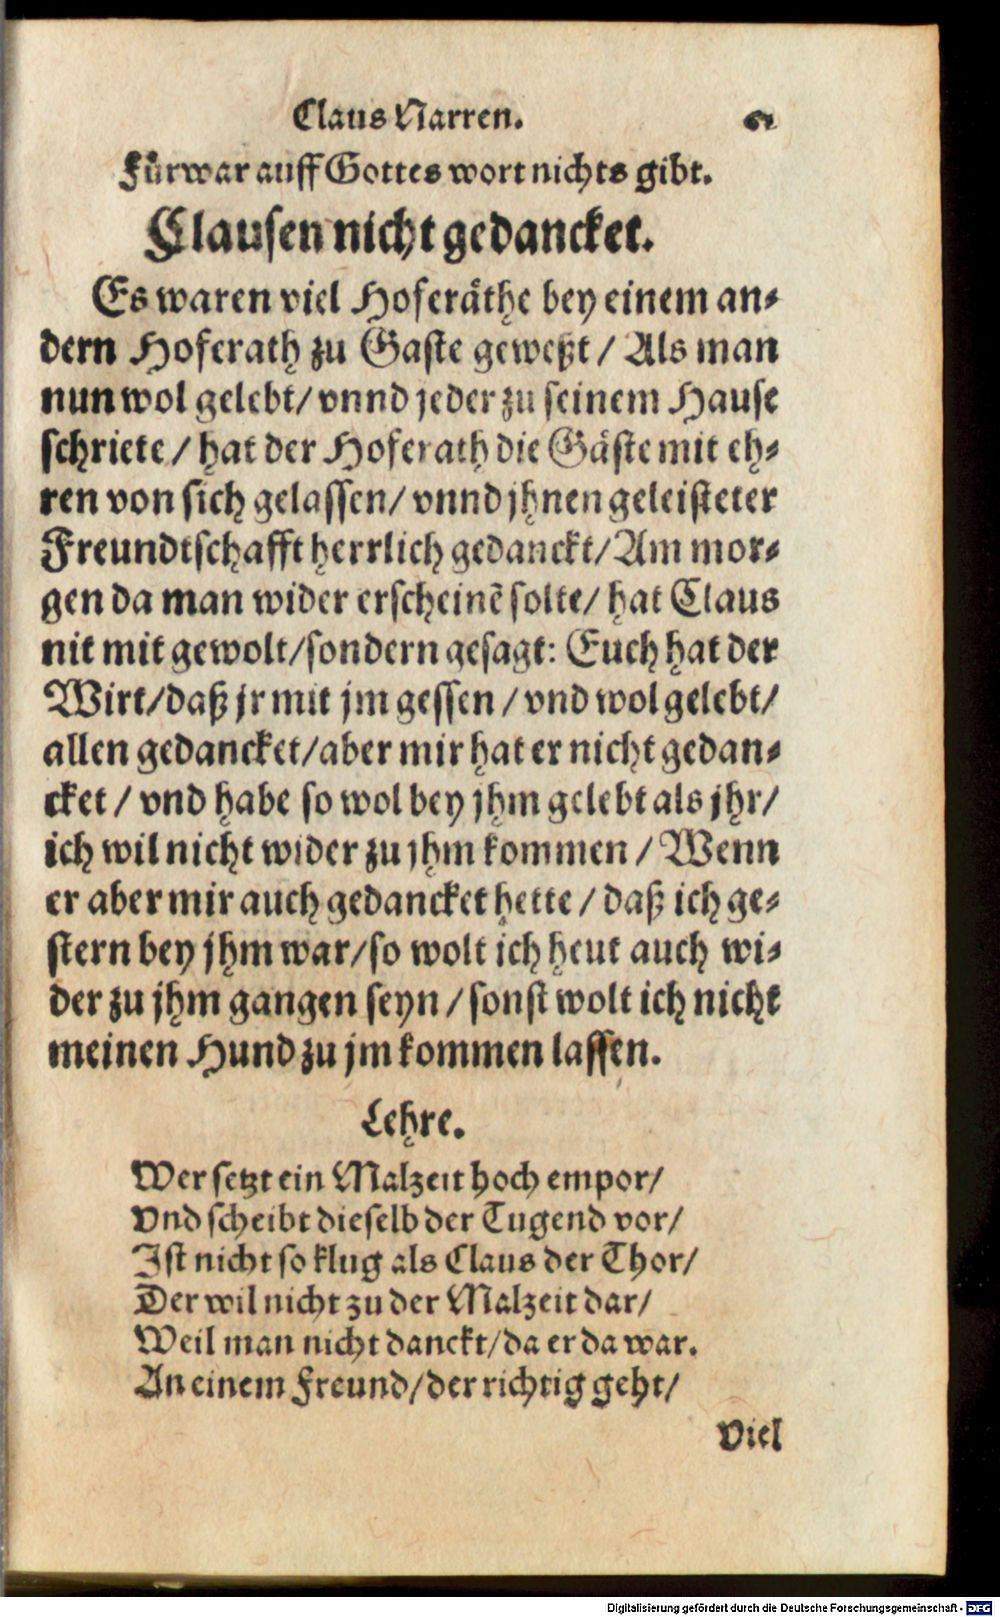 Claus Narren.
Fürwar auff Gottes wort nichts gibt.
Clausen nicht gedancket.
Es waren viel Hoferäthe bey einem an-
dern Hoferath zu Gaste geweßt / Als man
nun wol gelebt / vnnd jeder zu seinem Hause
schriete / hat der Hoferath die Gäste mit eh-
ren von sich gelassen / vnnd jhnen geleisteter
Freundtschafft herrlich gedanckt / Am mor-
gen da man wider erscheinẽ solte / hat Claus
nit mit gewolt / sondern gesagt: Euch hat der
Wirt / daß jr mit jm gessen / vnd wol gelebt /
allen gedancket / aber mir hat er nicht gedan-
cket / vnd habe so wol bey jhm gelebt als jhr /
ich wil nicht wider zu jhm kommen / Wenn
er aber mir auch gedancket hette / daß ich ge-
stern bey jhm war / so wolt ich heut auch wi-
der zu jhm gangen seyn / sonst wolt ich nicht
meinen Hund zu jm kommen lassen.
Lehre.
Wer setzt ein Malzeit hoch empor /
Vnd scheibt dieselb der Tugend vor /
Ist nicht so klug als Claus der Thor /
Der wil nicht zu der Malzeit dar /
Weil man nicht danckt / da er da war.
An einem Freund / der richtig geht /
Viel
Digitalisierung gefördert durch die Deutsche Forschungsgemeinschaft - DFG